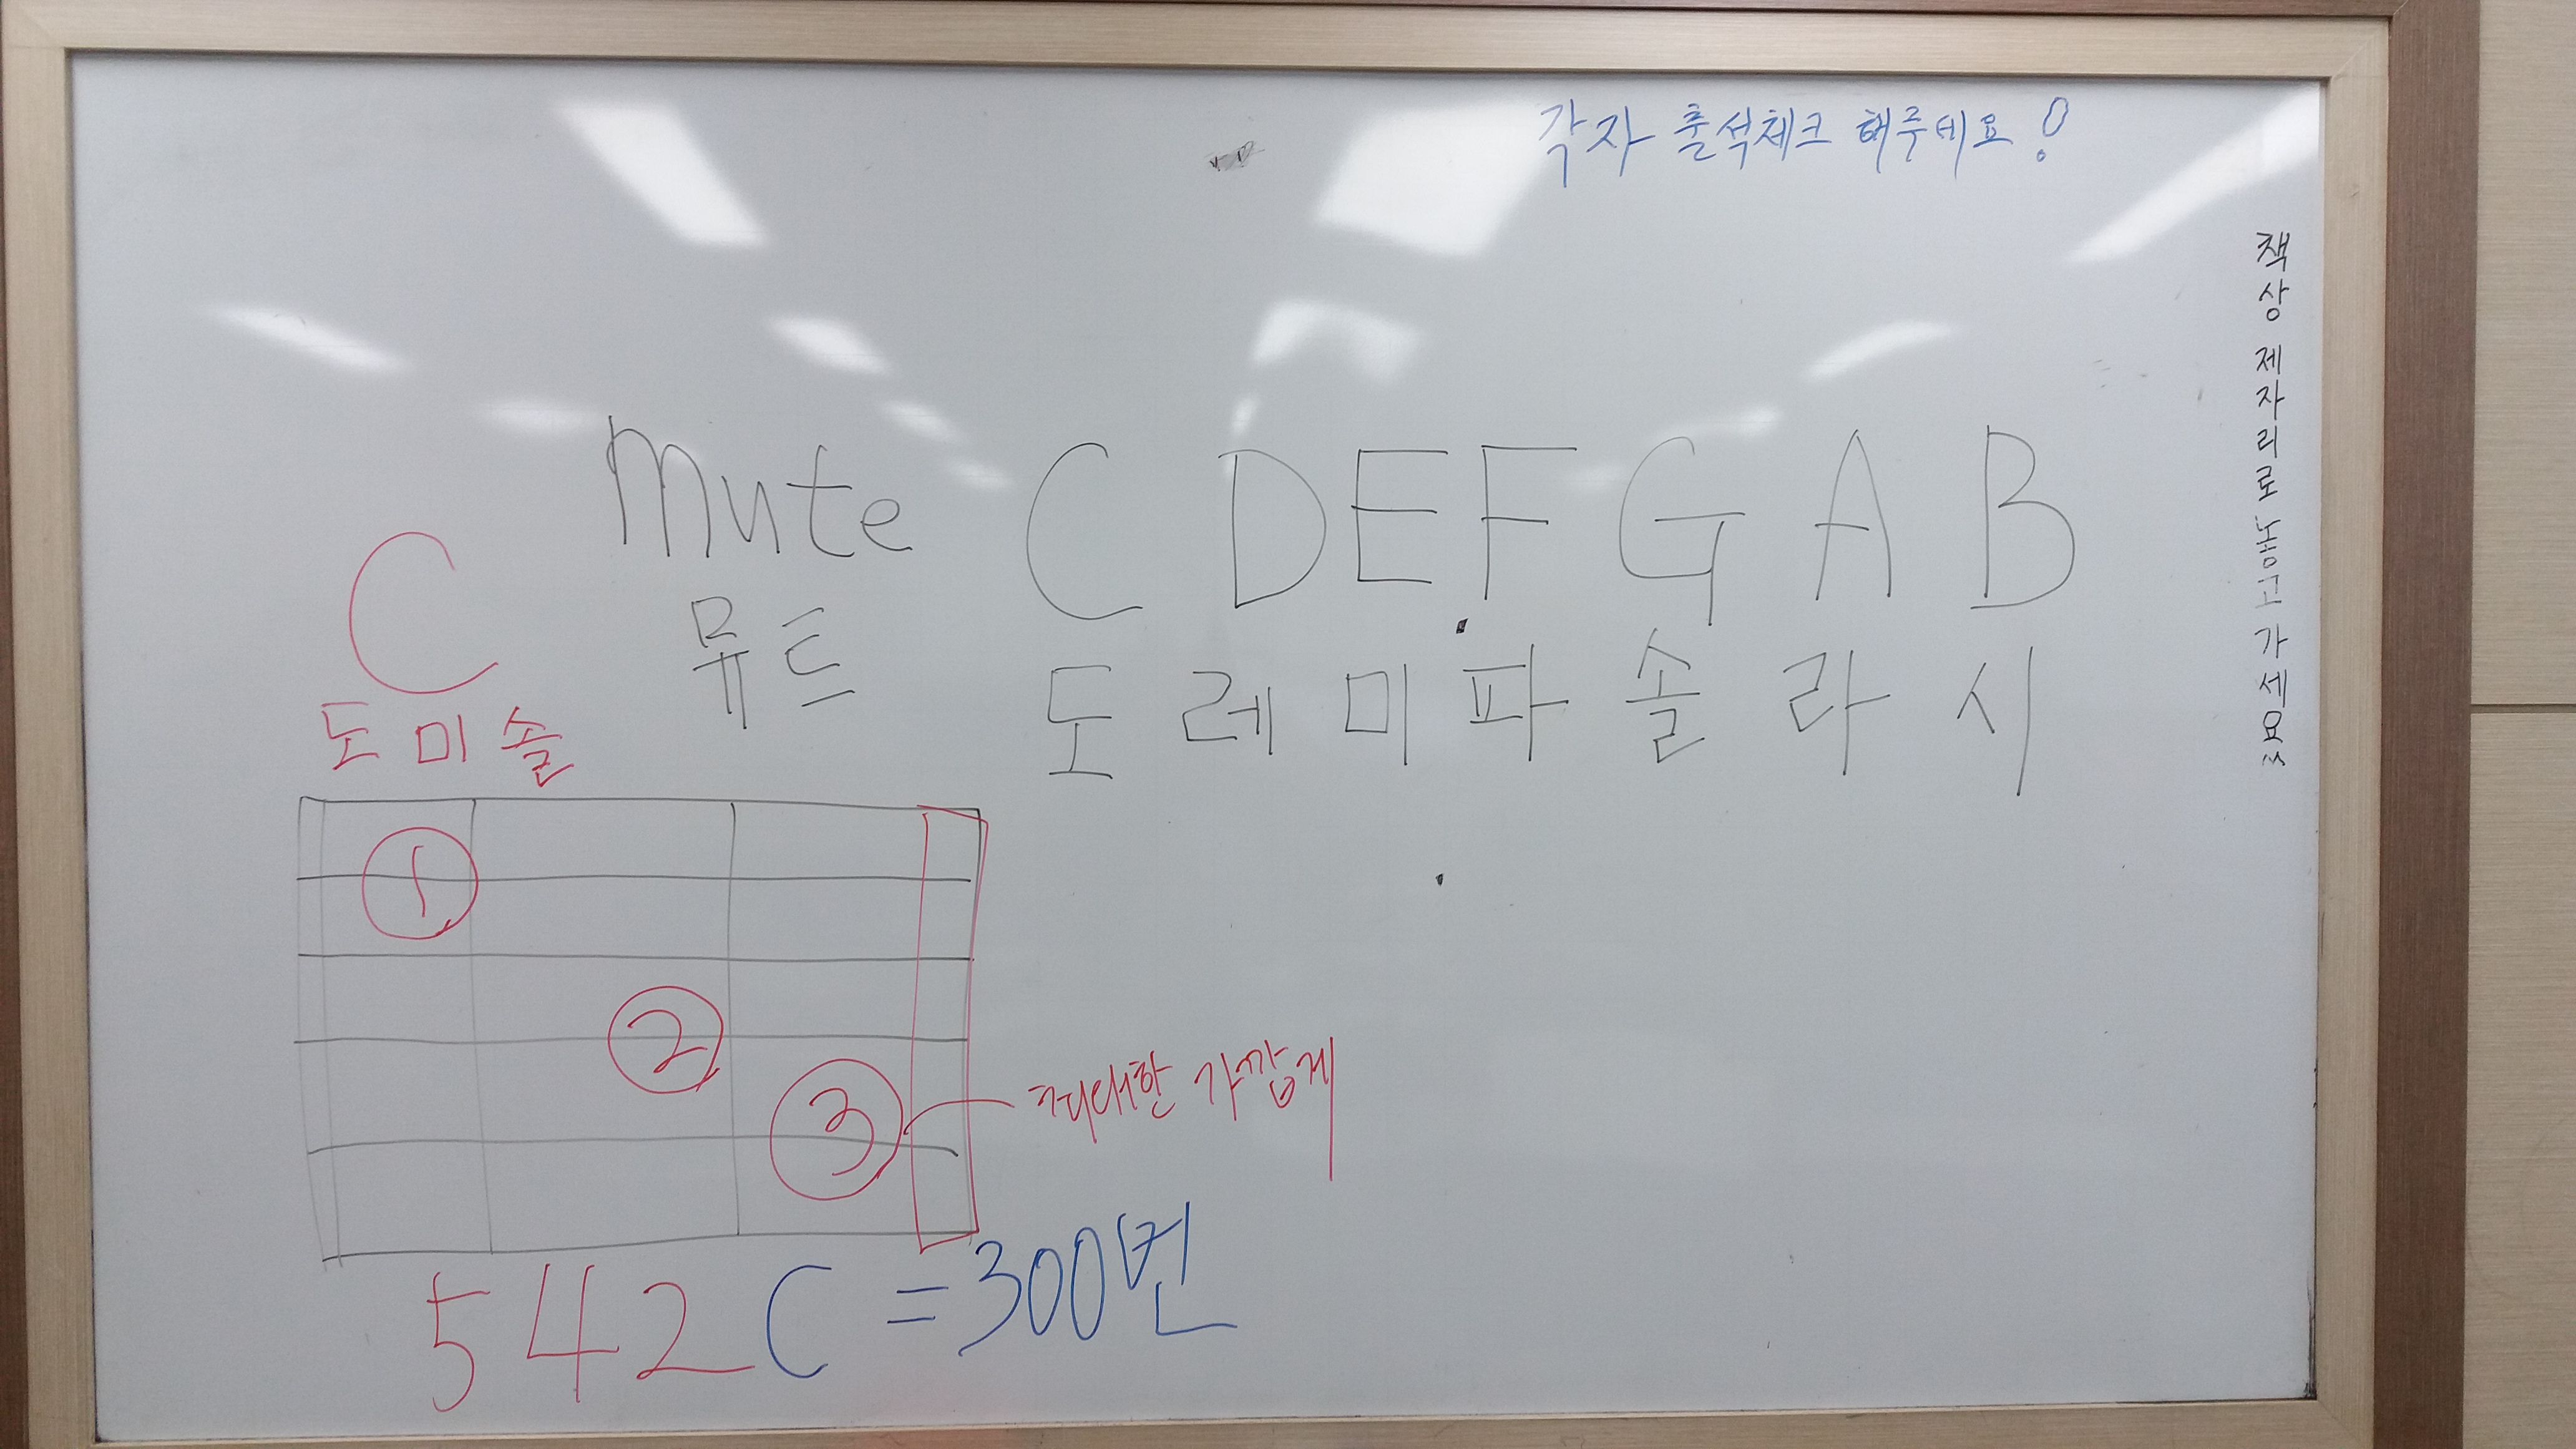 각자 출석체크 해주세요!
책상 제자리로 놓고 가세요~
mute
뮤트
C D E F G A B
도 레 미 파 솔 라 시
C
도 미 솔
1
2
3
최대한 가깝게
5 4 2 C = 300번